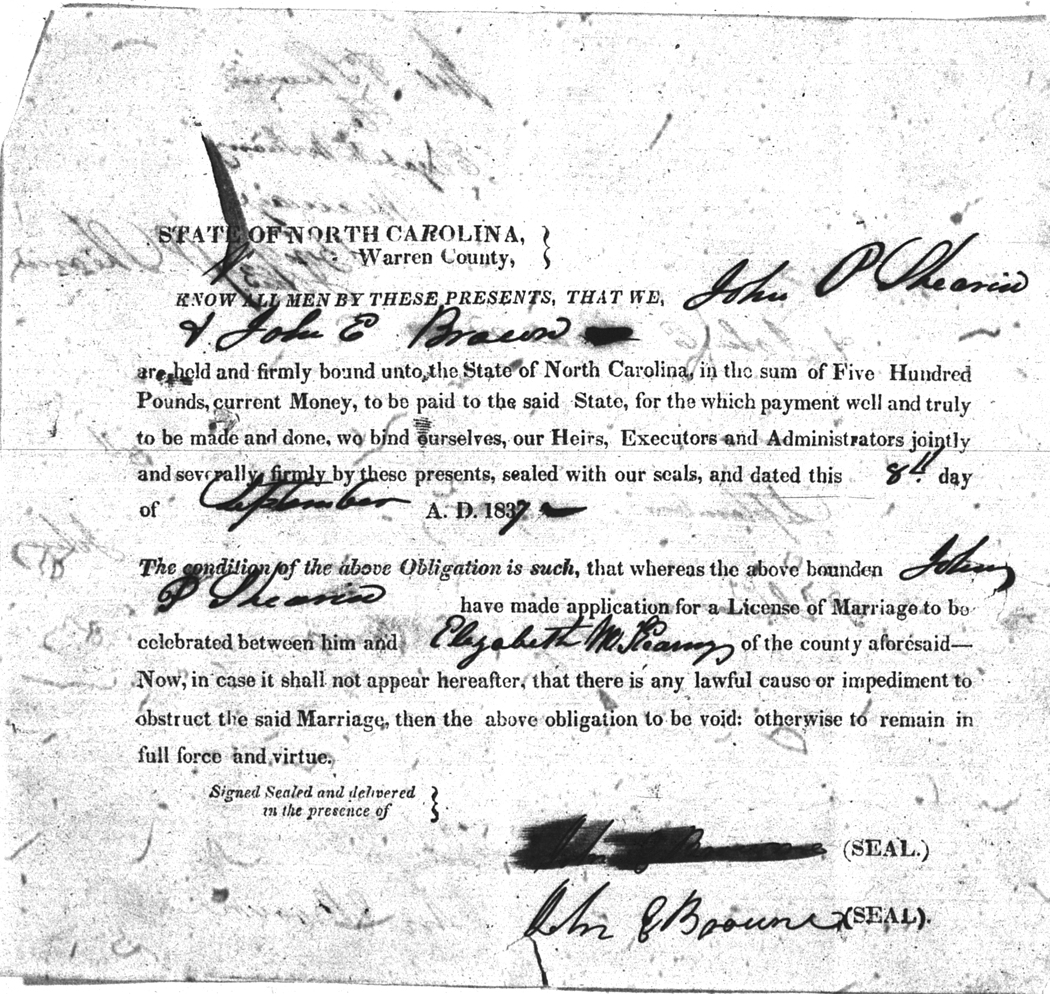 STATE OF NORTH CAROLINA,
Warren County,
KNOW ALL MEN BY THESE PRESENTS, THAT WE, John P Shearin
& John E Brown
are held and firmly bound unto the State of North Carolina, in the sum of Five Hundred
Pounds, current Money, to be paid to the said State, for the which payment well and truly
to be made and done, we bind ourselves, our Heirs, Executors and Administrators jointly
and severally firmly by these presents, sealed with our seals, and dated this 8th day
of September A. D. 1837
The condition of the above Obligation is such, that whereas the above bounden John
P Shearin have made application for a License of Marriage to be
celebrated between him and Elizabeth of the county aforesaid—
Now, in case it shall not appear hereafter, that there is any lawful cause or impediment to
obstruct the said Marriage, then the above obligation to be void: otherwise to remain in
full force and virtue.
Signed Sealed and delivered
in the presence of
(SEAL.)
John E Browne (SEAL).